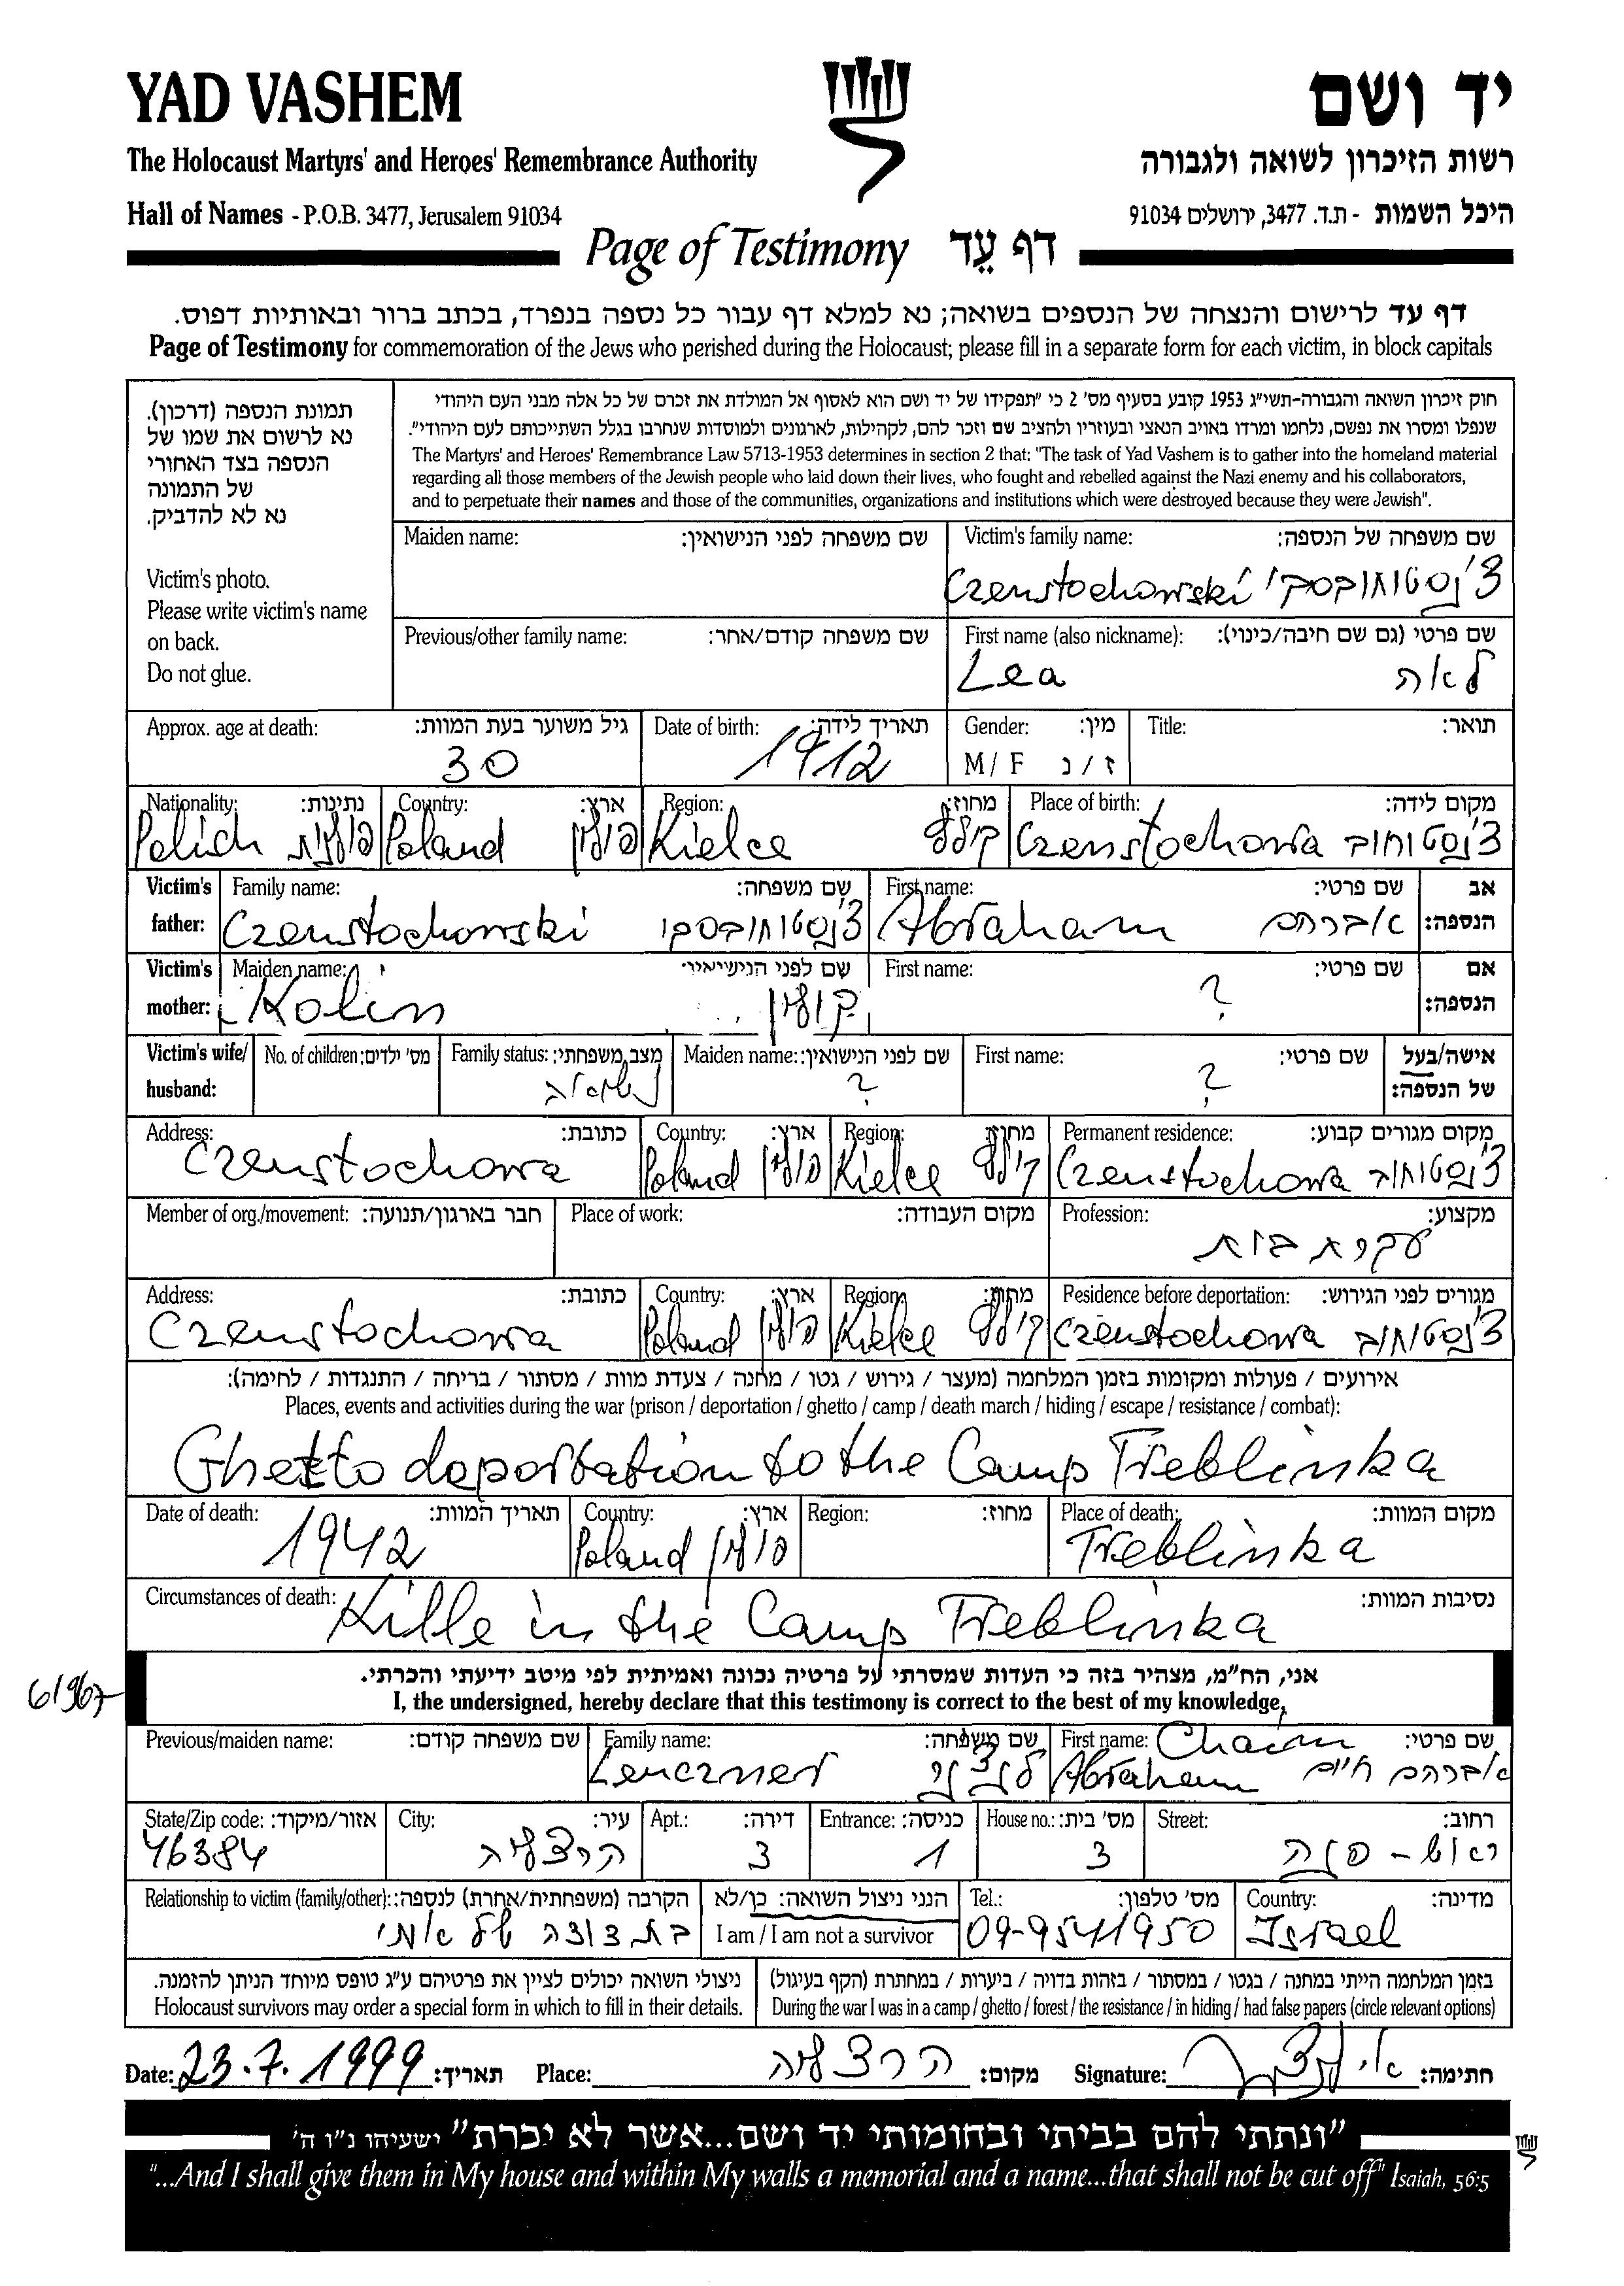 YAD VASHEM
יד ושם
The Holocaust Martyrs' and Heroes' Remembrance Authority
רשות הזיכרון לשואה ולגבורה
Hall of Names - P.O.B. 3477, Jerusalem 91034
היכל השמות - ת.ד. 3477, ירושלים 91034
Page of Testimony דף עֵד
דף עד לרישום והנצחה של הנספים בשואה; נא למלא דף עבור כל נספה בנפרד, בכתב ברור ובאותיות דפוס.
Page of Testimony for commemoration of the Jews who perished during the Holocaust; please fill in a separate form for each victim, in block capitals
תמונת הנספה (דרכון).
נא לרשום את שמו של
הנספה בצד האחורי
של התמונה
נא לא להדביק.
Victim's photo.
Please write victim's name
on back.
Do not glue.
חוק זיכרון השואה והגבורה-תשי"ג 1953 קובע בסעיף מס' 2 כי "תפקידו של יד ושם הוא לאסוף אל המולדת את זכרם של כל אלה מבני העם היהודי
שנפלו ומסרו את נפשם, נלחמו ומרדו באויב הנאצי ובעוזריו ולהציב שם וזכר להם, לקהילות, לארגונים ולמוסדות שנחרבו בגלל השתייכותם לעם היהודי".
The Martyrs' and Heroes' Remembrance Law 5713-1953 determines in section 2 that: "The task of Yad Vashem is to gather into the homeland material
regarding all those members of the Jewish people who laid down their lives, who fought and rebelled against the Nazi enemy and his collaborators,
and to perpetuate their names and those of the communities, organizations and institutions which were destroyed because they were Jewish".
Maiden name: שם משפחה לפני הנישואין:
Victim's family name: שם משפחה של הנספה:
Czenstochowski צ'נסטוחובסקי
Previous/other family name: שם משפחה קודם/אחר:
First name (also nickname): שם פרטי (גם שם חיבה/כינוי):
Lea לאה
Approx. age at death: גיל משוער בעת המוות:
30
Date of birth: תאריך לידה:
1912
Gender: מין:
M / F ז / נ
Title: תואר:
Nationality: נתינות:
Polish פולנית
Country: ארץ:
Poland פולין
Region: מחוז:
Kielce קילצ
Place of birth: מקום לידה:
Czenstochowa צ'נסטוחוב
Victim's father: אב הנספה:
Family name: שם משפחה:
Czenstochowski צ'נסטוחובסקי
First name: שם פרטי:
Abraham אברהם
Victim's mother: אם הנספה:
Maiden name: שם לפני הנישואין:
Kolin קולין
First name: שם פרטי:
?
Victim's wife/ husband: אישה/בעל של הנספה:
No. of children: מס' ילדים:
Family status: מצב משפחתי:
נשואה
Maiden name: שם לפני הנישואין:
?
First name: שם פרטי:
?
Address: כתובת:
Czenstochowa
Country: ארץ:
Poland פולין
Region: מחוז:
Kielce קילצ
Permanent residence: מקום מגורים קבוע:
Czenstochowa צ'נסטוחוב
Member of org./movement: חבר בארגון/תנועה:
Place of work: מקום העבודה:
Profession: מקצוע:
עקרת בית
Address: כתובת:
Czenstochowa
Country: ארץ:
Poland פולין
Region: מחוז:
Kielce קילצ
Residence before deportation: מגורים לפני הגירוש:
Czenstochowa צ'נסטוחוב
אירועים / פעולות ומקומות בזמן המלחמה (מעצר / גירוש / גטו / מחנה / צעדת מוות / מסתור / בריחה / התנגדות / לחימה):
Places, events and activities during the war (prison / deportation / ghetto / camp / death march / hiding / escape / resistance / combat):
Ghetto deportation to the Camp Treblinka
Date of death: תאריך המוות:
1942
Country: ארץ:
Poland פולין
Region: מחוז:
Place of death: מקום המוות:
Treblinka
Circumstances of death: נסיבות המוות:
Kille in the Camp Treblinka
אני, הח"מ, מצהיר בזה כי העדות שמסרתי על פרטיה נכונה ואמיתית לפי מיטב ידיעתי והכרתי.
I, the undersigned, hereby declare that this testimony is correct to the best of my knowledge,
Previous/maiden name: שם משפחה קודם:
Family name: שם משפחה:
Lenczner לנצנר
First name: שם פרטי:
Chaim
Abraham אברהם חיים
State/Zip code: אזור/מיקוד:
46384
City: עיר:
הרצליה
Apt.: דירה:
3
Entrance: כניסה:
1
House no.: מס' בית:
3
Street: רחוב:
ראש-פנה
Relationship to victim (family/other): הקרבה (משפחתית/אחרת) לנספה:
בת דודה של אמי
הנני ניצול השואה: כן/לא
I am / I am not a survivor
Tel.: מס' טלפון:
09-9541950
Country: מדינה:
Israel
ניצולי השואה יכולים לציין את פרטיהם ע"ג טופס מיוחד הניתן להזמנה.
Holocaust survivors may order a special form in which to fill in their details.
בזמן המלחמה הייתי במחנה / בגטו / במסתור / בזהות בדויה / ביערות / במחתרת (הקף בעיגול)
During the war I was in a camp / ghetto / forest / the resistance / in hiding / had false papers (circle relevant options)
Date: 23.7.1999 תאריך:
Place: הרצליה מקום:
Signature: חתימה:
"ונתתי להם בביתי ובחומותי יד ושם...אשר לא יכרת" ישעיהו נ"ו ה'
"...And I shall give them in My house and within My walls a memorial and a name...that shall not be cut off" Isaiah, 56:5